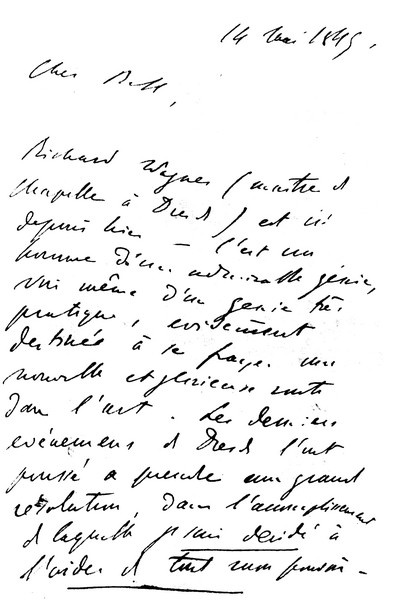 14 Mai 1849,
Cher B
Richard Wagner (maitre de
chapelle à Dresde) est ici
depuis hier — C'est un
homme d'un admirable génie,
oui même d'un genie très
pratique, evidement
destiné à se frayer une
nouvelle et glorieuse route
dans l'art. Les derniers
evénemens de Dresde l'ont
poussé a prendre une grande
resolution, dans l'accomplissement
de laquelle je suis decidé à
l'aider de tout mon pouvoir —